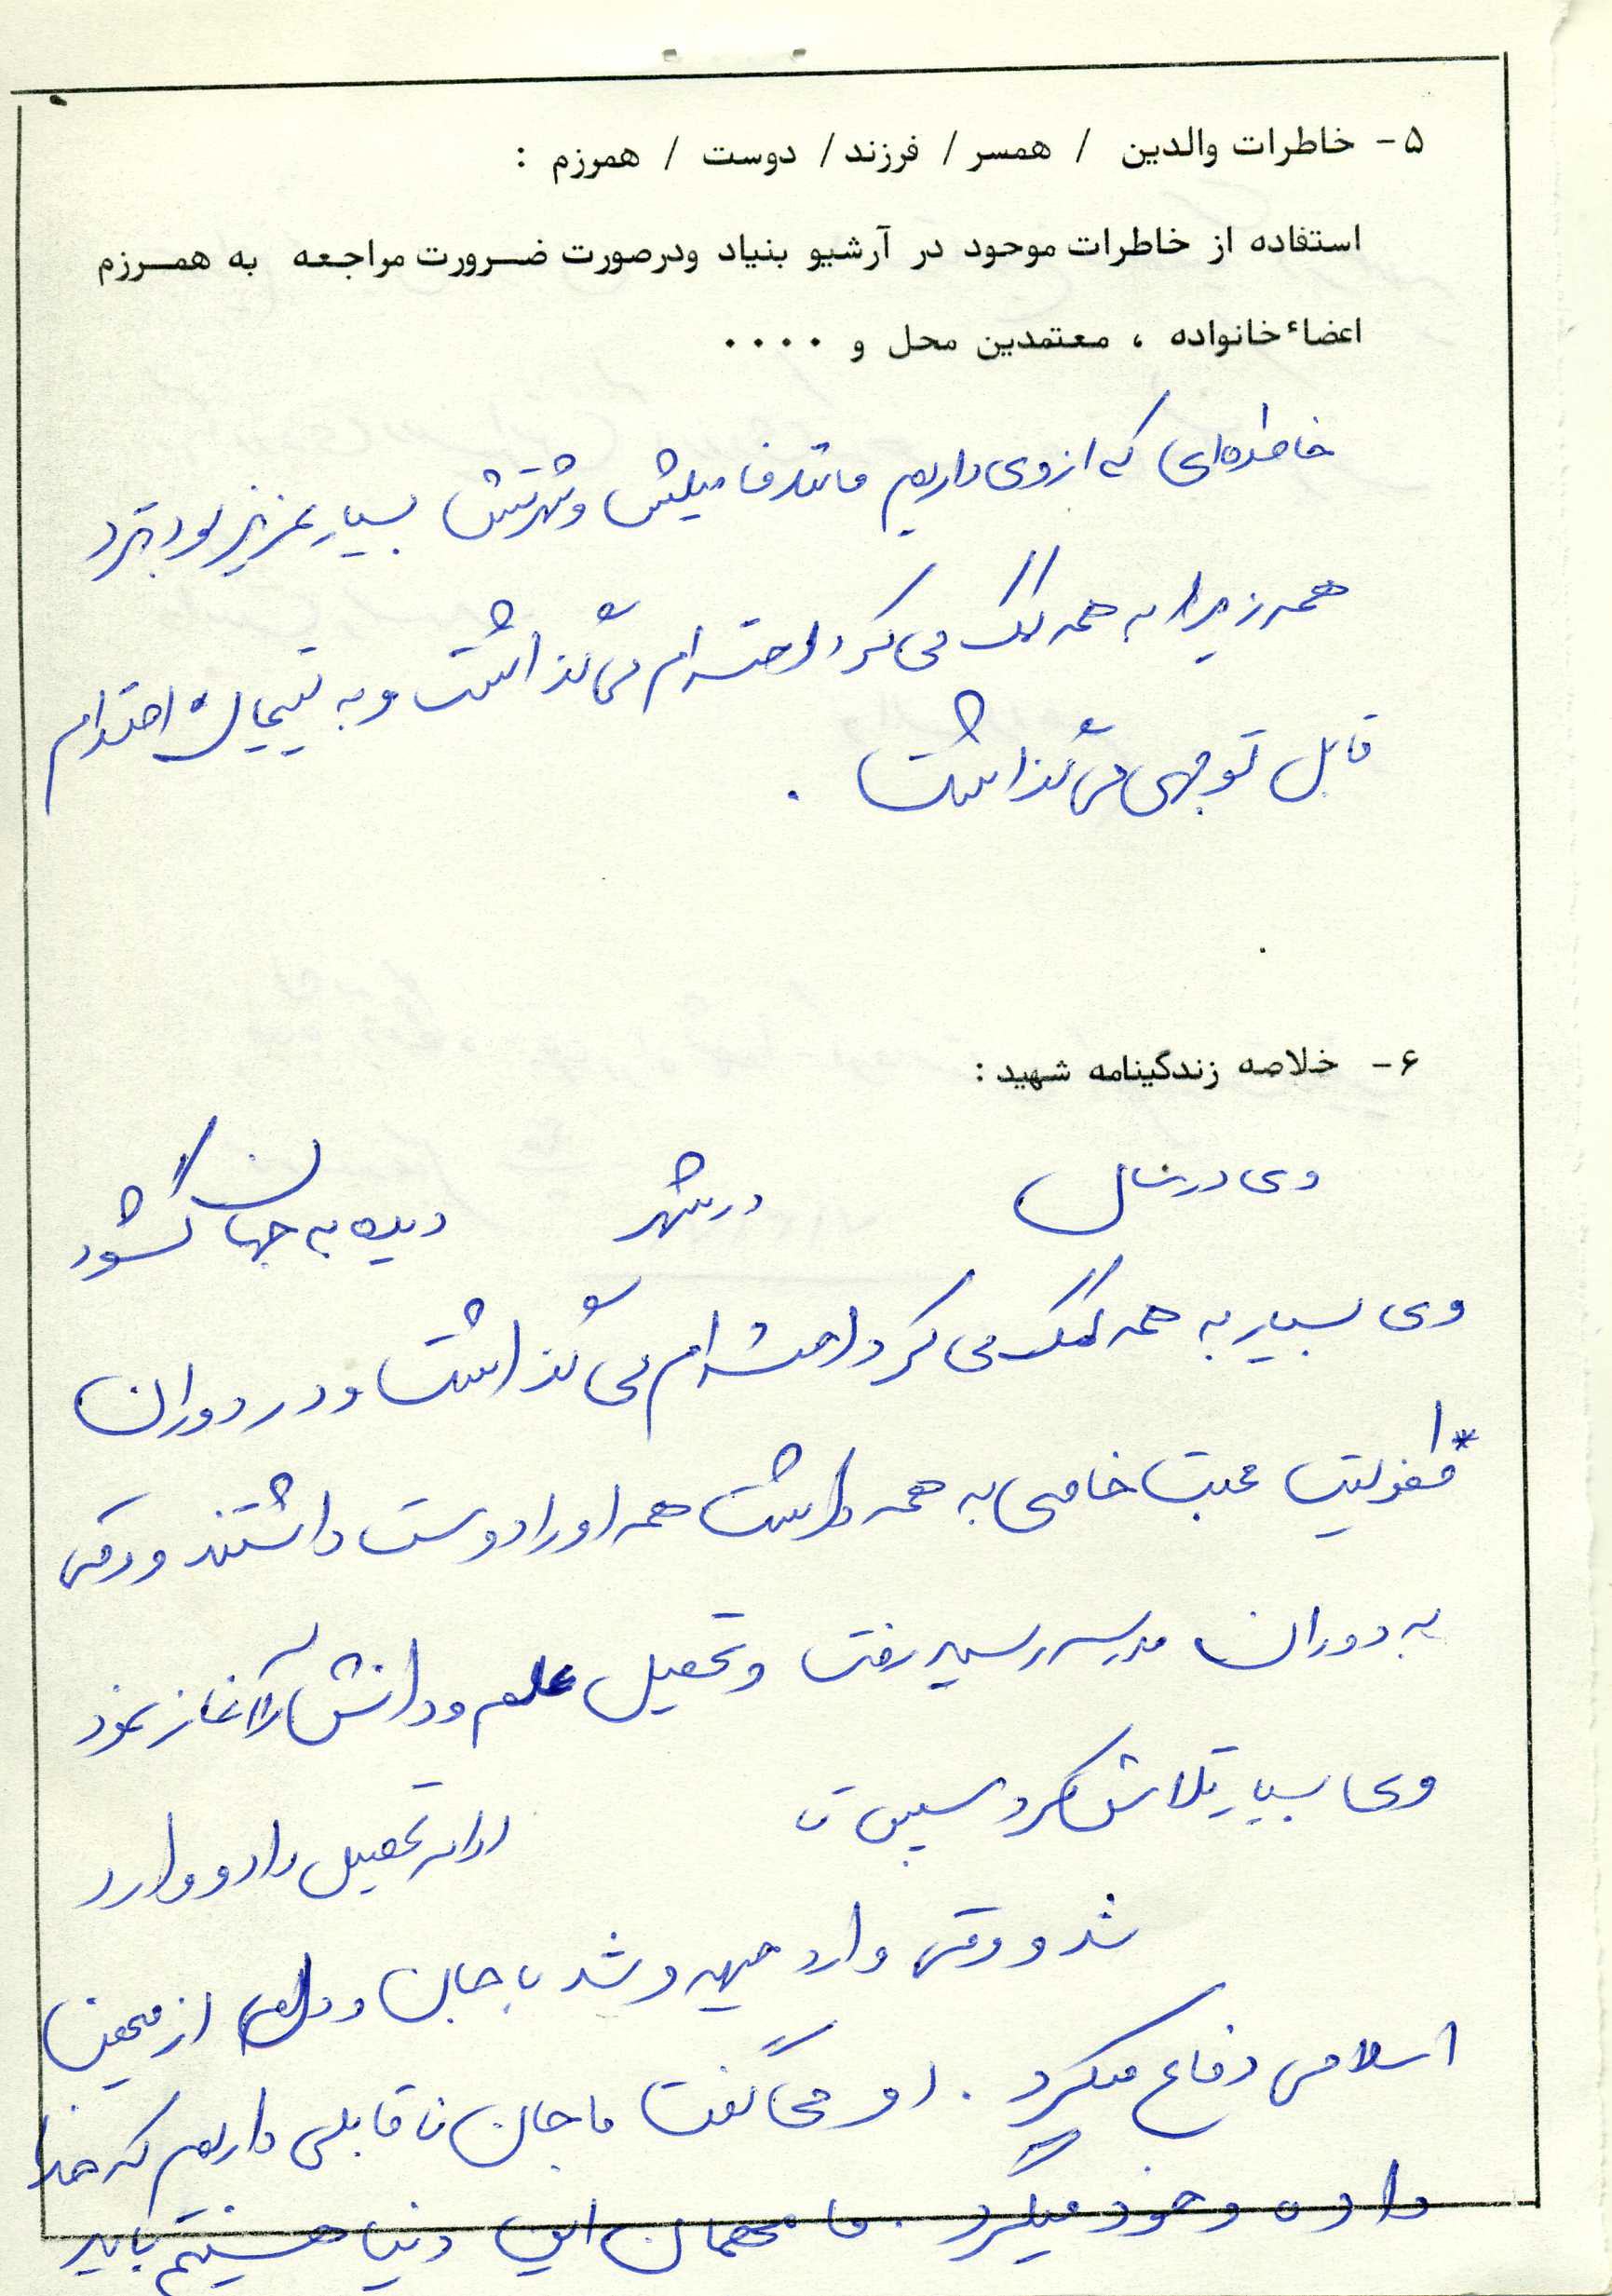 ۵- خاطرات والدین / همسر / فرزند / دوست / همرزم :
استفاده از خاطرات موحود در آرشیو بنیاد ودرصورت ضرورت مراجعه به همرزم
اعضاء خانواده ، معتمدین محل و ....
خاطره‌ای که از وی داریم مانند فامیلش وشهرتش بسیار عزیز بود نزد
همه زیرا به همه کمک می کرد احترام می گذاشت و به یتیمان احترام
قابل توجهی می گذاشت .
۶- خلاصه زندگینامه شهید :
وی درسال در شهر دیده به جهان گشود
وی بسیار به همه کمک می کرد احترام می گذاشت و در دوران
طفولیت محبت خاصی به همه داشت همه او را دوست داشتند و وقتی
به دوران مدرسه رسید رفت و تحصیل علم و دانش را آغاز نمود
وی بسیار تلاش کرد سپس تا ادامه تحصیل داد و وارد
شد و وقتی وارد جبهه و شد با جان و دل از میهن
اسلامی دفاع میکرد . او می گفت ما جان ناقابلی داریم که خدا
داده و خود میگیرد . ما مهمان این دنیا هستیم باید